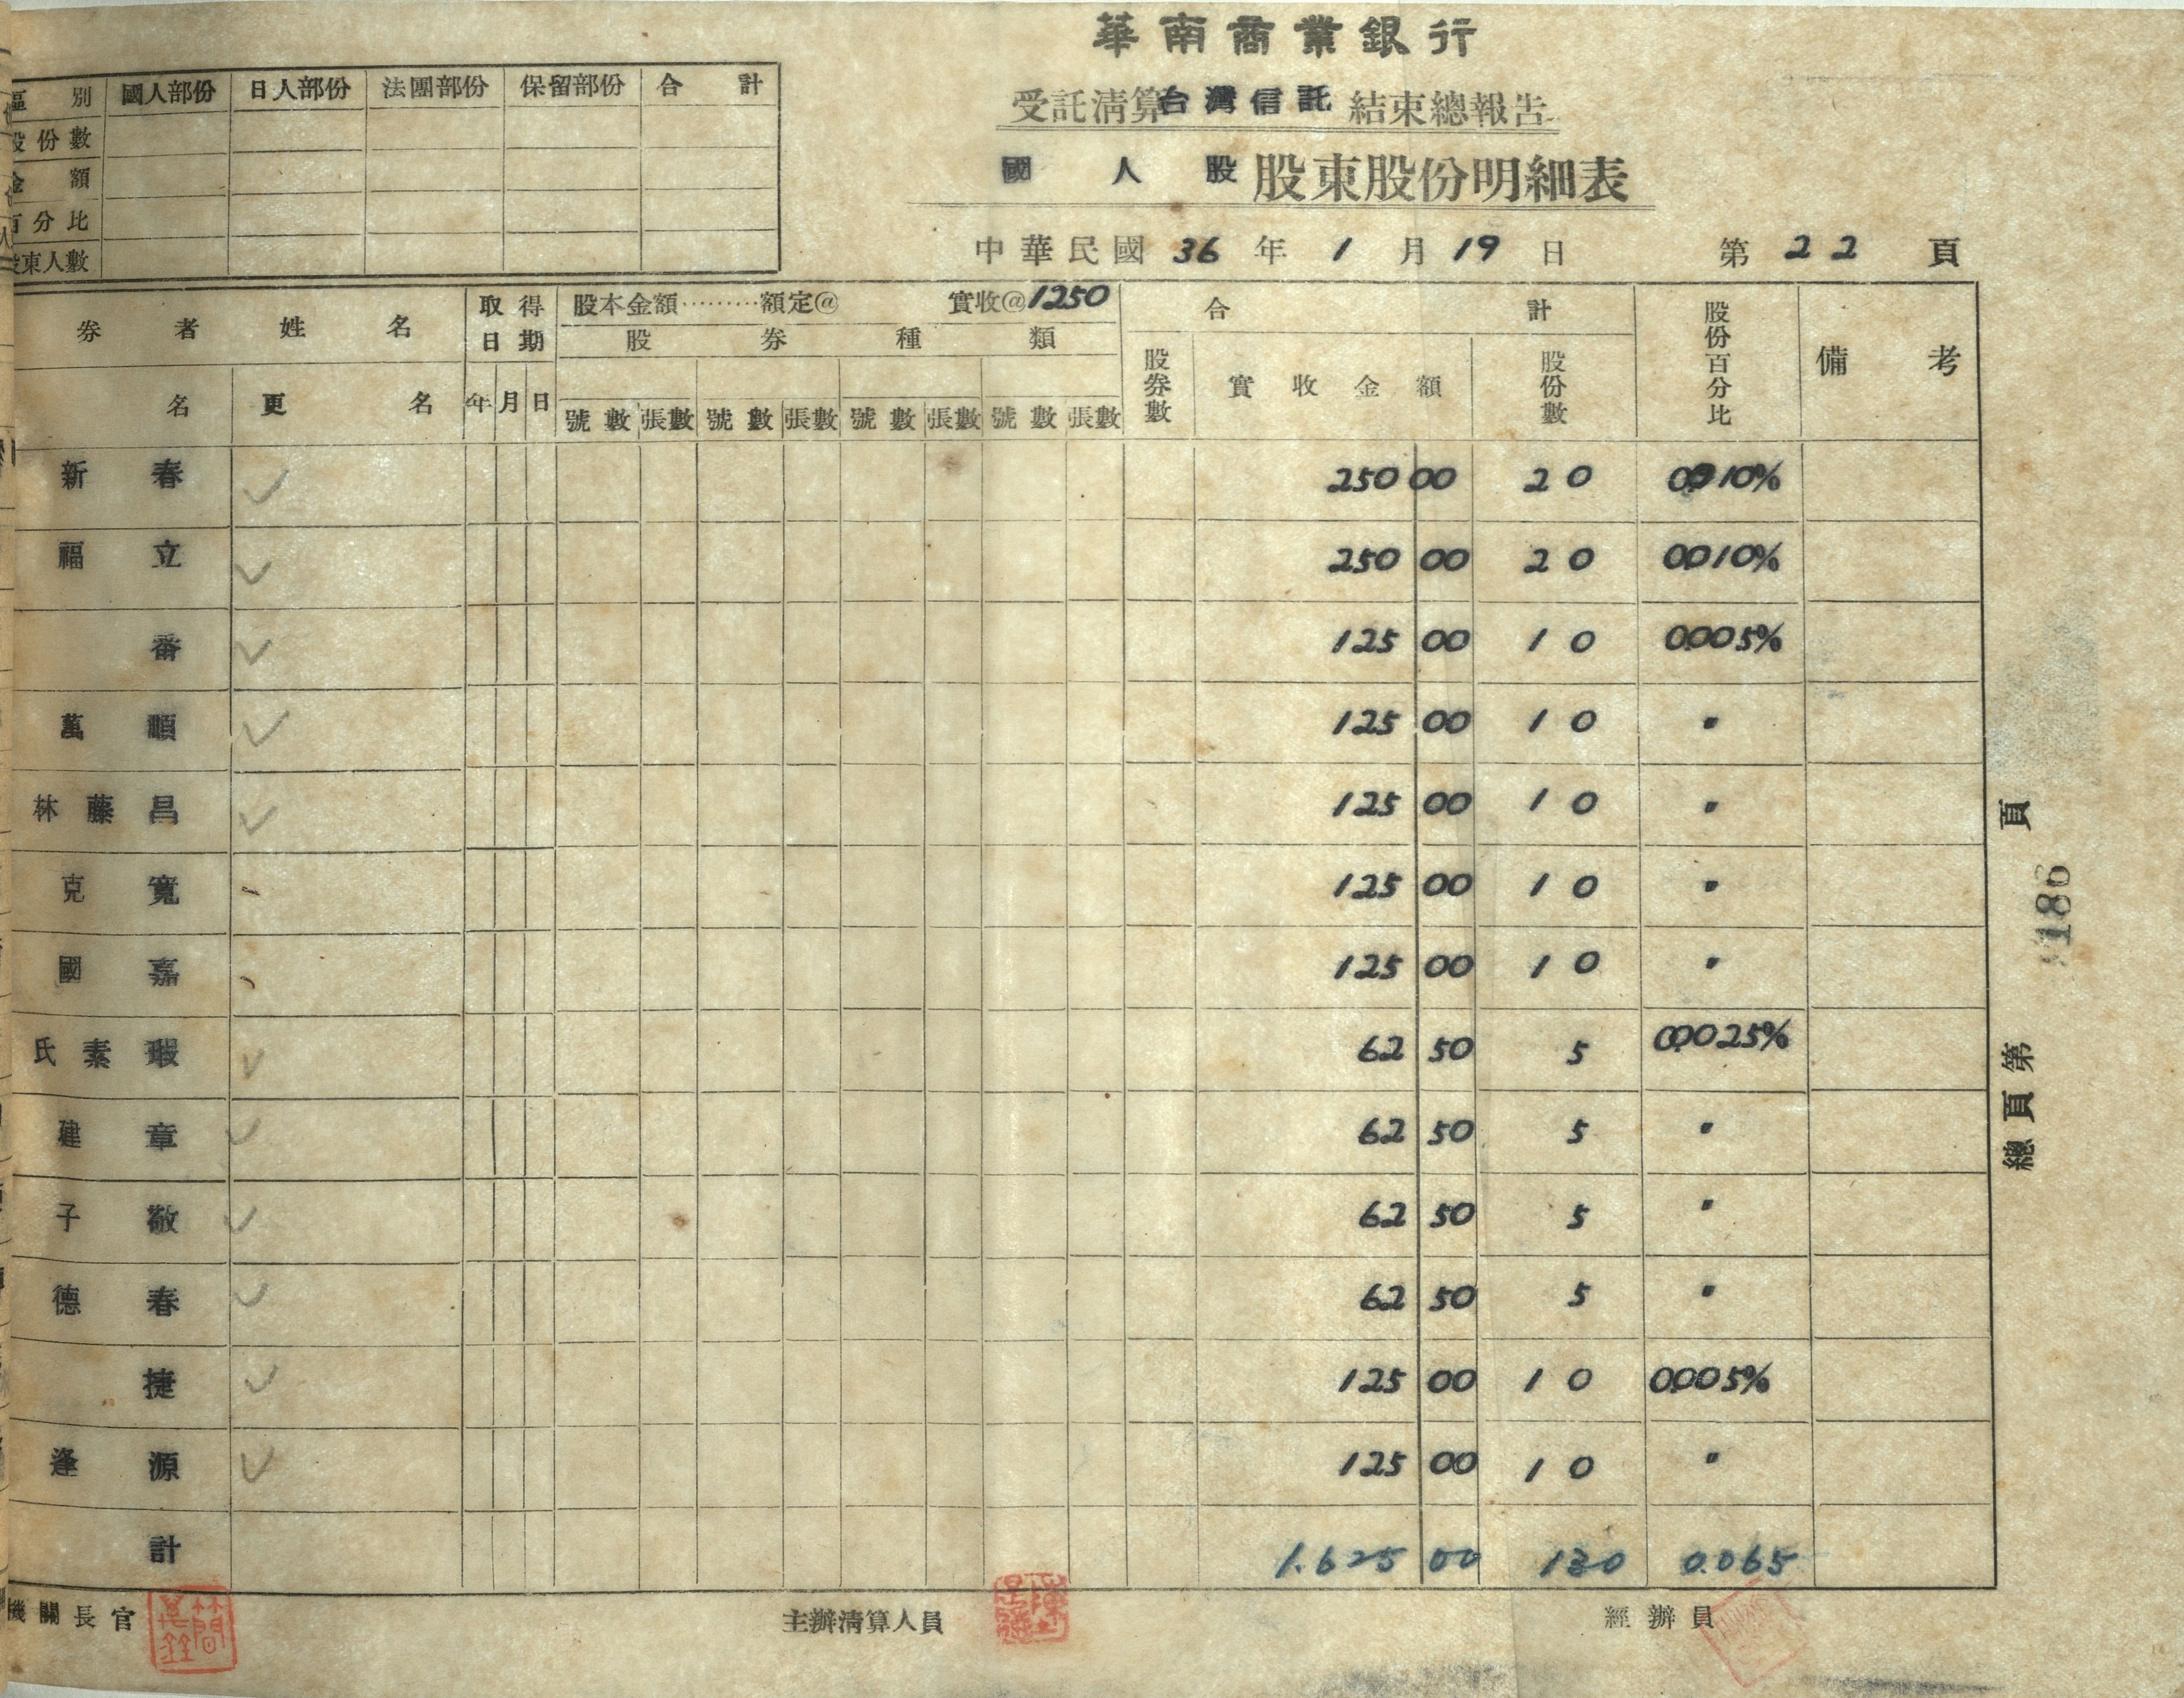 華南商業銀行
受託清算台灣信託結束總報告
國人股股東股份明細表
中華民國36年1月19日 第22頁
區別 國人部份 日人部份 法團部份 保留部份 合計
股份數
金額
百分比
股東人數
券者姓名 取得日期 股本金額·········額定@ 實收@1250 合計 股份百分比 備考
股券種類
名 更名 年 月 日 股券數 實收金額 股份數
號數 張數 號數 張數 號數 張數 號數 張數
新春 250 00 20 0.010%
福立 250 00 20 0.010%
番 125 00 10 0.005%
萬順 125 00 10 〃
林藤昌 125 00 10 〃
克寬 125 00 10 〃
國嘉 125 00 10 〃
氏素瑕 62 50 5 0.0025%
建章 62 50 5 〃
子敬 62 50 5 〃
德春 62 50 5 〃
捷 125 00 10 0.005%
逢源 125 00 10 〃
計 1.625 00 130 0.065
機關長官 主辦清算人員 經辦員
總頁第 186 頁